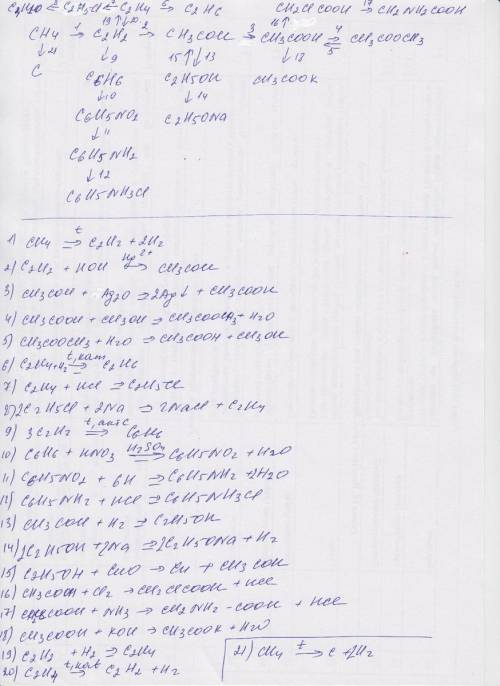 C2H5Cl ← C2H4 → C2H6 CH2ClCOOH 17→ CH2NH2COOH
19↑↓20 16↑
CH4 1→ C2H2 2→ CH3COH 3→ CH3COOH 4⇌5 CH3COOCH3
↓21 ↓9 15↑↓13 ↓18
C C6H6 C2H5OH CH3COOK
↓10 ↓14
C6H5NO2 C2H5ONa
↓11
C6H5NH2
↓12
C6H5NH3Cl
1) CH4 t⇒ C2H2 + 2H2
2) C2H2 + HOH Hg2+→ CH3COH
3) CH3COH + Ag2O ⇒ 2Ag↓ + CH3COOH
4) CH3COOH + CH3OH ⇒ CH3COOCH3 + H2O
5) CH3COOCH3 + H2O ⇒ CH3COOH + CH3OH
6) C2H4+H2 t,кат⇒ C2H6
7) C2H4 + HCl ⇒ C2H5Cl
8) 2C2H5Cl + 2Na ⇒ 2NaCl + C2H4
9) 3C2H2 t,акт C⇒ C6H6
10) C6H6 + HNO3 H2SO4⇒ C6H5NO2 + H2O
11) C6H5NO2 + 6H ⇒ C6H5NH2 + 2H2O
12) C6H5NH2 + HCl ⇒ C6H5NH3Cl
13) CH3COH + H2 ⇒ C2H5OH
14) 2C2H5OH + 2Na ⇒ 2C2H5ONa + H2
15) C2H5OH + CuO → Cu + CH3COH
16) CH3COOH + Cl2 → CH2ClCOOH + HCl
17) COOH + NH3 → CH2NH2-COOH + HCl
18) CH3COOH + KOH → CH3COOK + H2O
19) C2H2 + H2 ⇒ C2H4
20) C2H4 t,кат→ C2H2 + H2
21) CH4 t→ C + 2H2